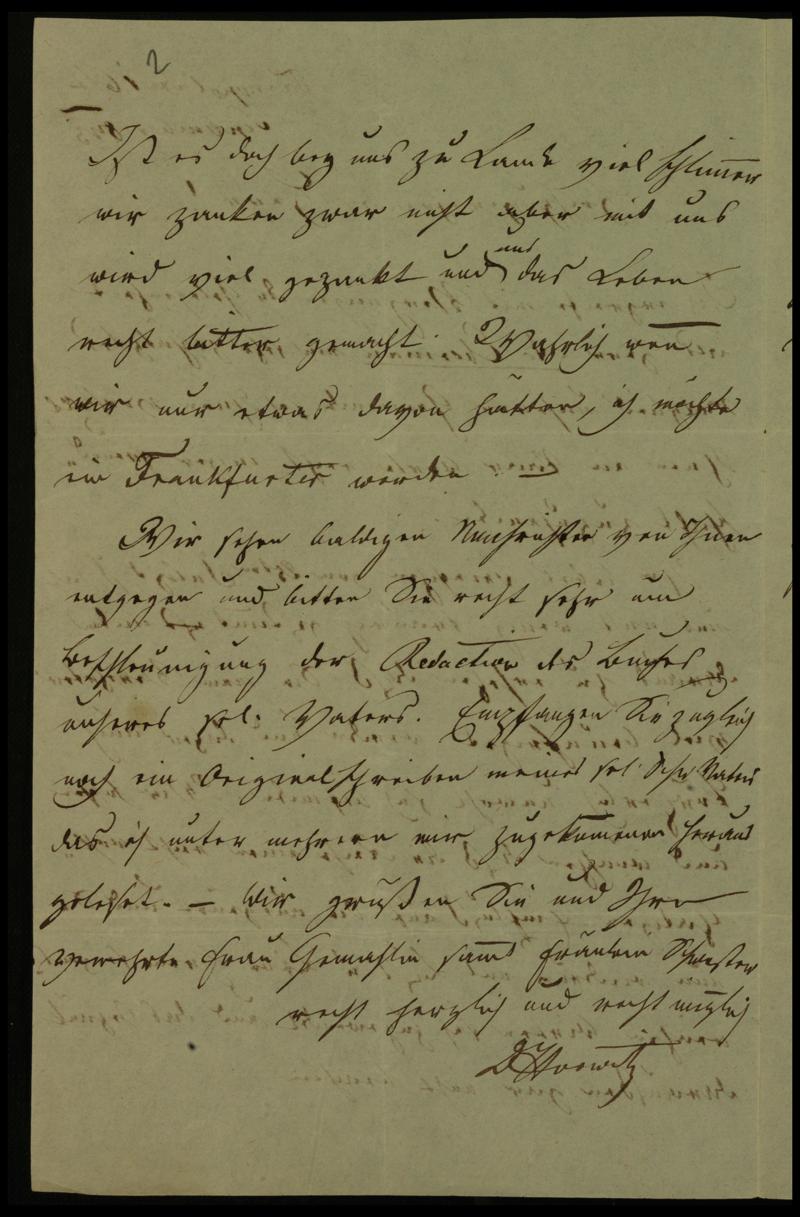 2
Ist es doch bey uns zu Lande viel schlimer
wir zanken zwar nicht aber mit uns
wird viel gezankt und uns das Leben
recht bitter gemacht. Wahrlich wen
wir nur etwas davon hätten, ich möchte
ein Frankfurter werden. —
Wir sehen baldigen Nachrichten von Ihnen
entgegen und bitten Sie recht sehr um
Beschleunigung der Redaction des Buches
unseres sel. Vaters. Empfangen Sie zugleich
noch ein Originalschreiben meines sel. Vaters
das ich unter mehreren mir zugekomenen heraus
gelesen. — Wir grüßen Sie und Ihre
verehrte Frau Gemahlin samt Fräulein Schwester
recht herzlich und recht
Horwitz